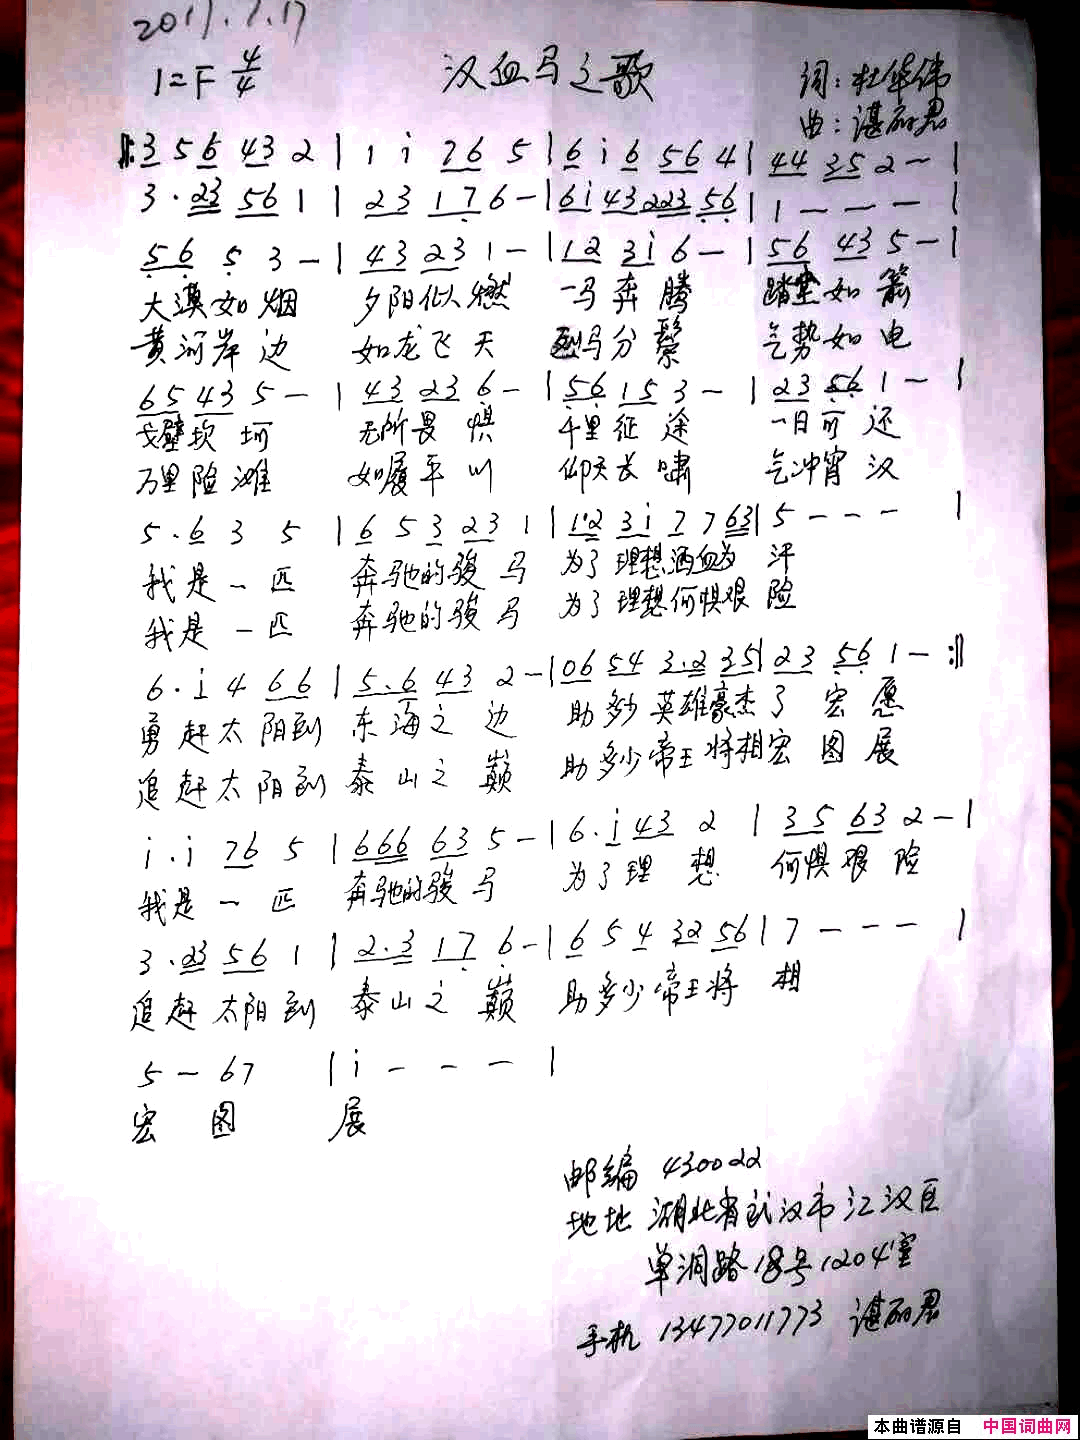 2017.7.17
1=F 4/4 汉血马之歌 词:杜华伟
曲:谌丽君
‖: 3 5 6 43 2 | 1 i 76 5 | 6 i 6 56 4 | 44 35 2 - |
3 · 23 56 1 | 23 17 6 - | 6i 43 223 56 | 1 - - - |
56 5 3 - | 43 23 1 - | 12 3i 6 - | 56 43 5 - |
大漠如烟 夕阳似火燃 一马奔腾 踏尘如箭
黄河岸边 如龙飞天 烈马分鬃 气势如电
65 43 5 - | 43 23 6 - | 56 15 3 - | 23 56 1 - |
戈壁坎坷 无所畏惧 千里征途 一日可还
万里险滩 如履平川 仰天长啸 气冲宵汉
5 · 6 3 5 | 6 5 3 23 1 | 1·2 3i 7 7 63 | 5 - - - |
我是一匹 奔驰的骏马 为了理想洒血为 汗
我是一匹 奔驰的骏马 为了理想何惧艰险
6 · i 4 66 | 5·6 43 2 - | 06 54 3·2 35 | 23 56 1 - :‖
勇赶太阳到 东海之边 助多少英雄豪杰了宏愿
追赶太阳到 泰山之巅 助多少帝王将相宏图展
i · i 76 5 | 666 63 5 - | 6 · i 43 2 | 35 63 2 - |
我是一匹 奔驰的骏马 为了理想 何惧艰险
3 · 23 56 1 | 2·3 17 6 - | 6 5 4 32 56 | 7 - - - |
追赶太阳到 泰山之巅 助多少帝王将 相
5 - 67 | i - - - |
宏图 展
邮编 430022
地址 湖北省武汉市江汉区
单洞路18号1204室
手机 13477011773 谌丽君
本曲谱源自 中国词曲网